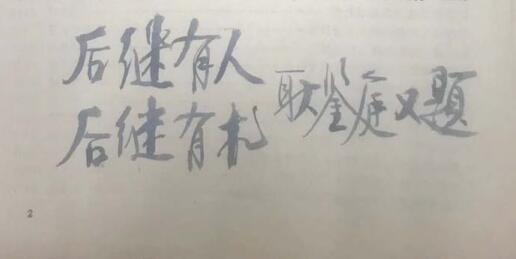 后继有人
后继有术
耿鉴庭又题
2